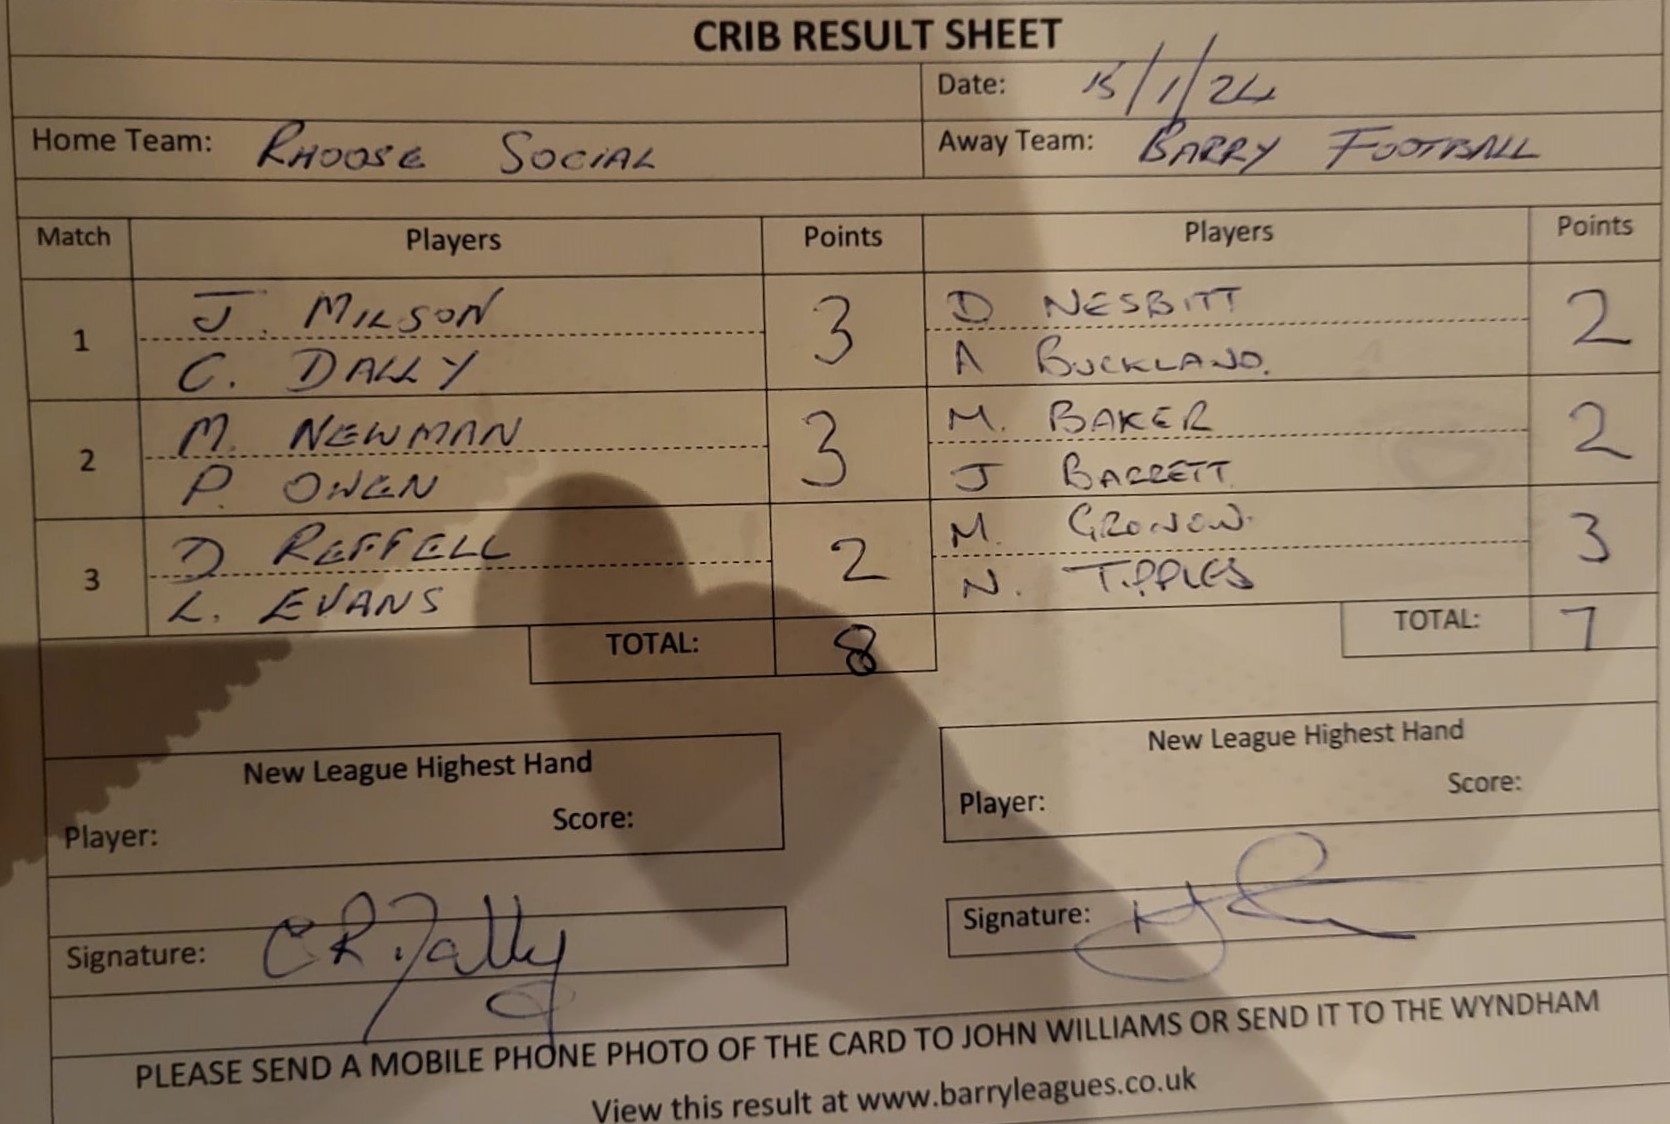 CRIB RESULT SHEET
Date: 15/1/24
Home Team: RHOOSE SOCIAL Away Team: BARRY FOOTBALL
Match Players Points Players Points
J. MILSON D NESBITT
1 3 2
C. DALLY A BUCKLAND.
M. NEWMAN M. BAKER
2 3 2
P. OWEN J BARRETT
D REFFELL M. GRONOW.
3 2 3
L. EVANS N. TIPPLES
TOTAL: 8 TOTAL: 7
New League Highest Hand New League Highest Hand
Score: Score:
Player: Player:
Signature: C R Dally Signature:
PLEASE SEND A MOBILE PHONE PHOTO OF THE CARD TO JOHN WILLIAMS OR SEND IT TO THE WYNDHAM
View this result at www.barryleagues.co.uk